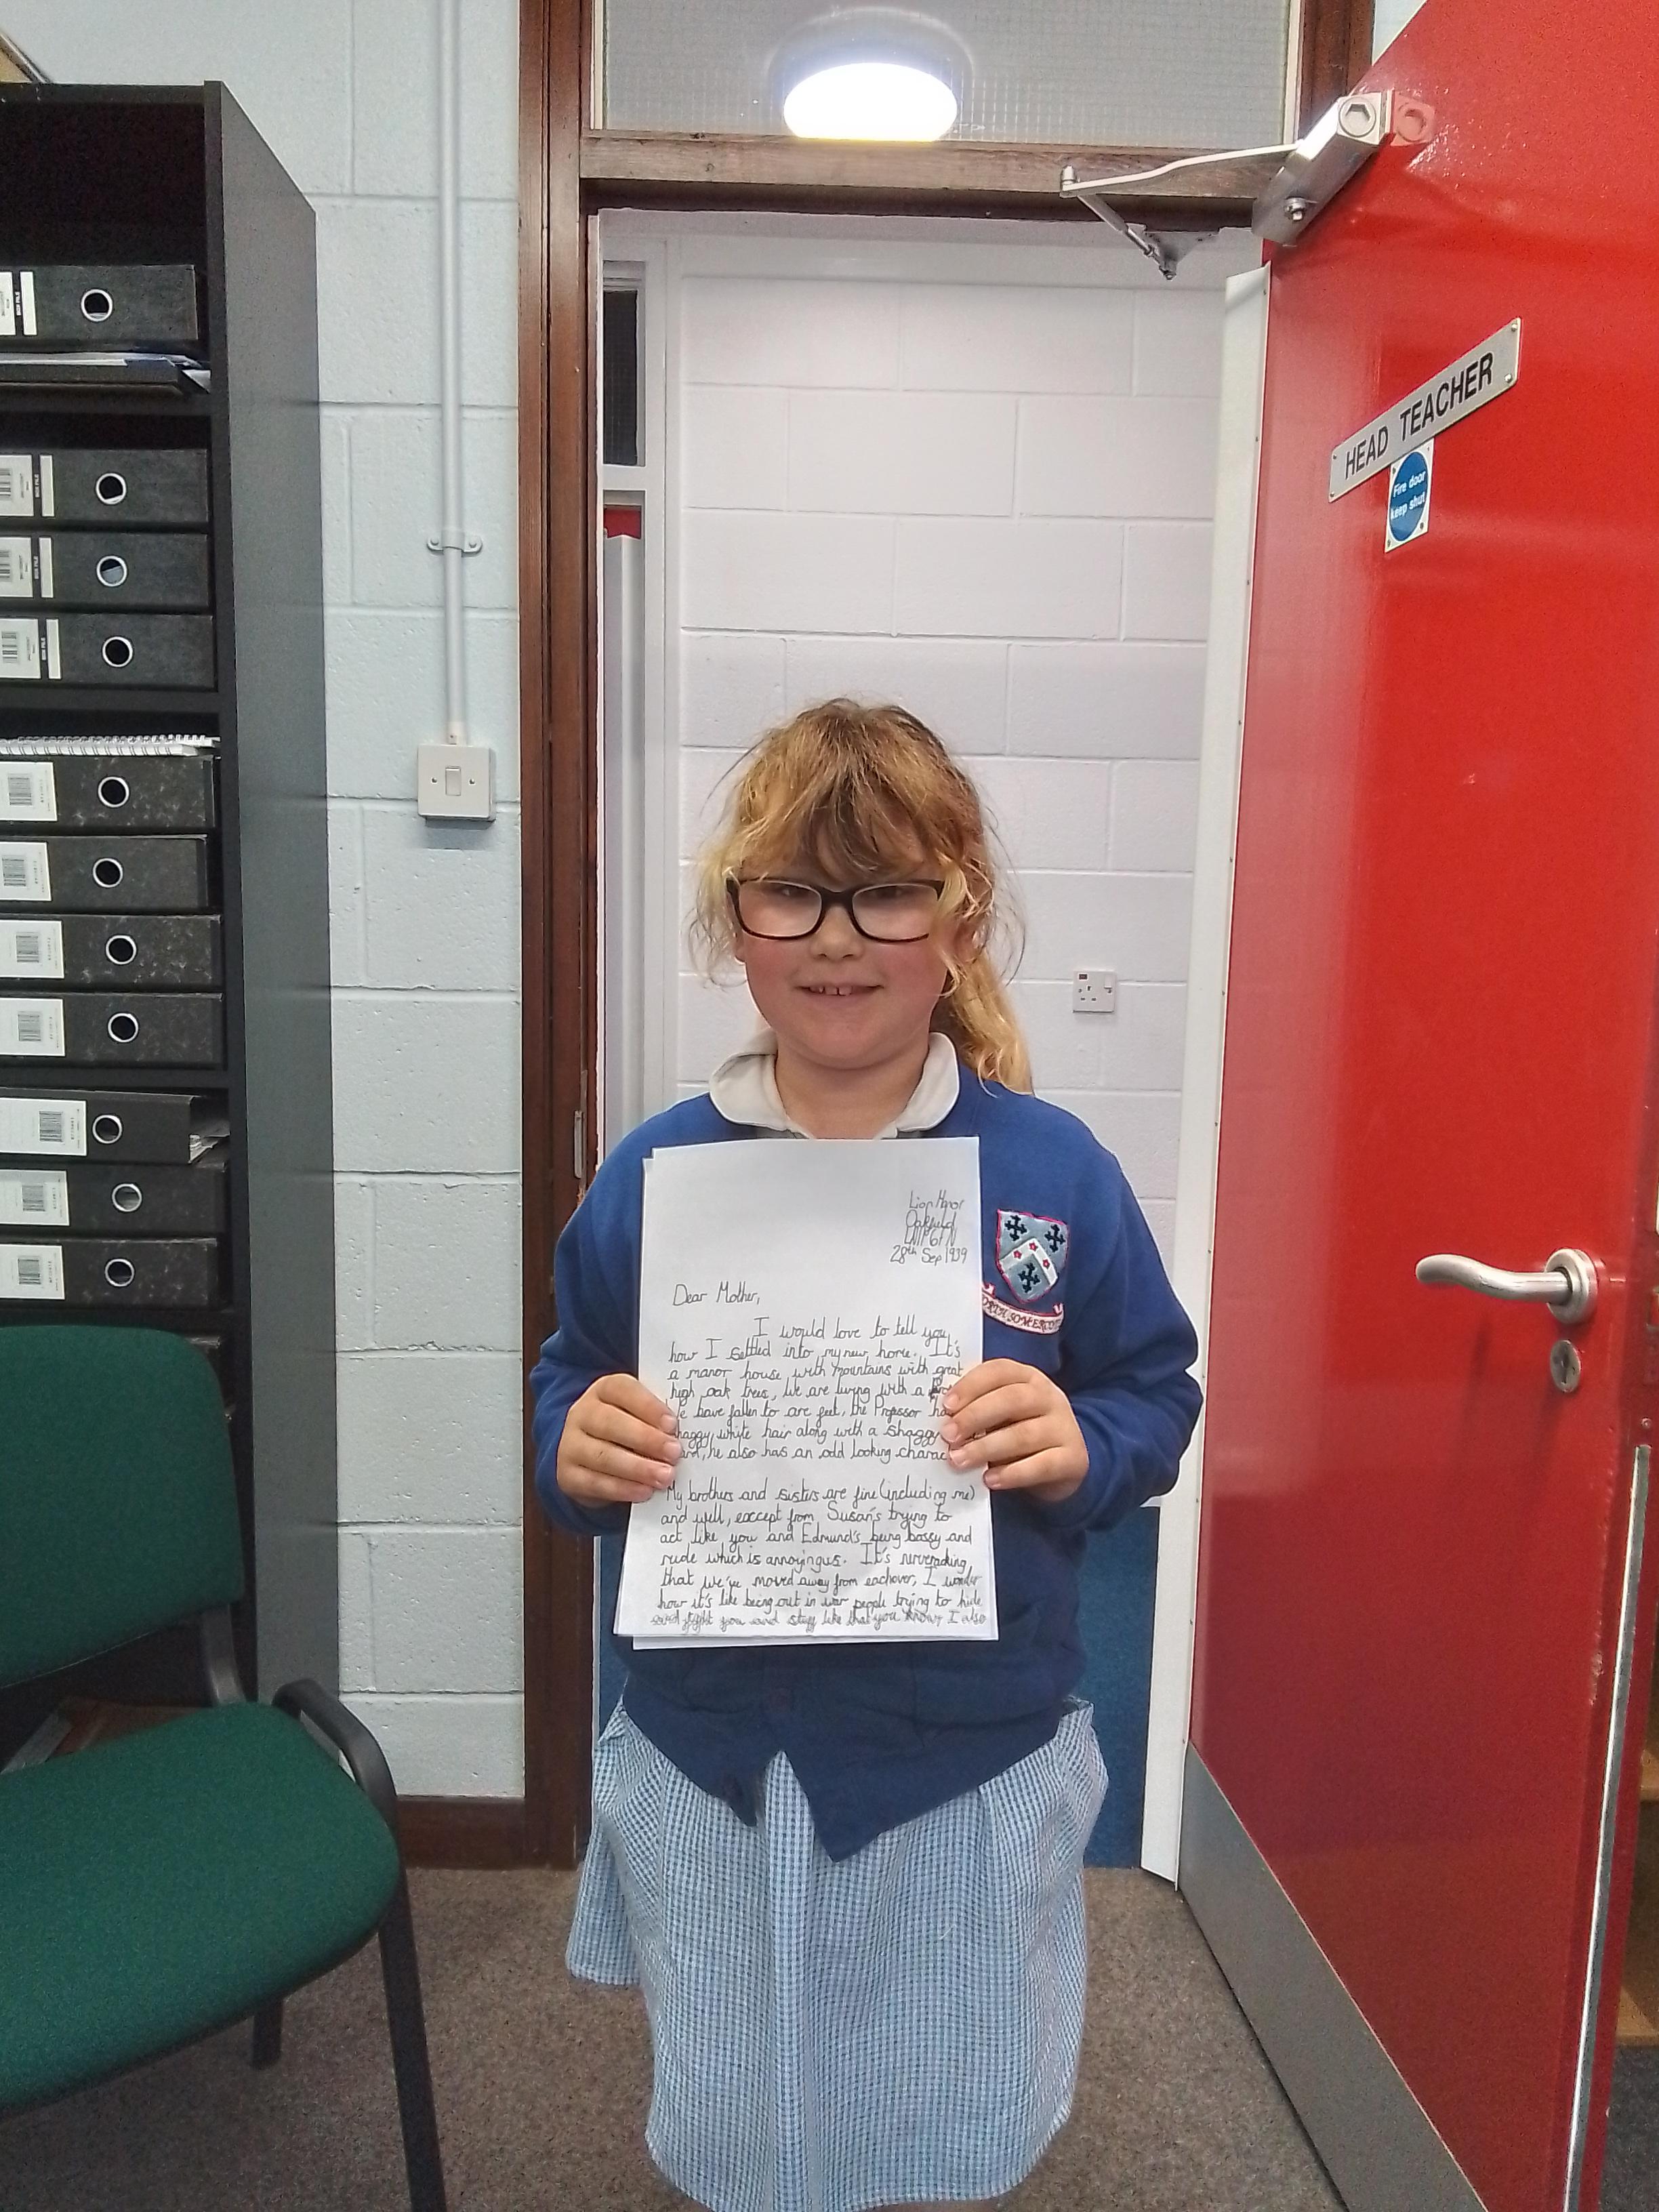 HEAD TEACHER
Fire door
keep shut
BOX FILE
BOX FILE
BOX FILE
BOX FILE
28th Sep 1939
Dear Mother,
I would love to tell you
how I settled into my new home. It's
a manor house with mountains with great
high oak trees, We are living with a
have fallen to are feet, the Professor
shaggy white hair along with a shaggy
he also has an odd looking
My brothers and sisters are fine (including me)
and well, except from Susan's trying to
act like you and Edmund's being bossy and
rude which is annoying us. It's
that we've moved away from eachover, I wonder
how it's like being out in war people trying to hide
and fight you and stuff like that you know. I also